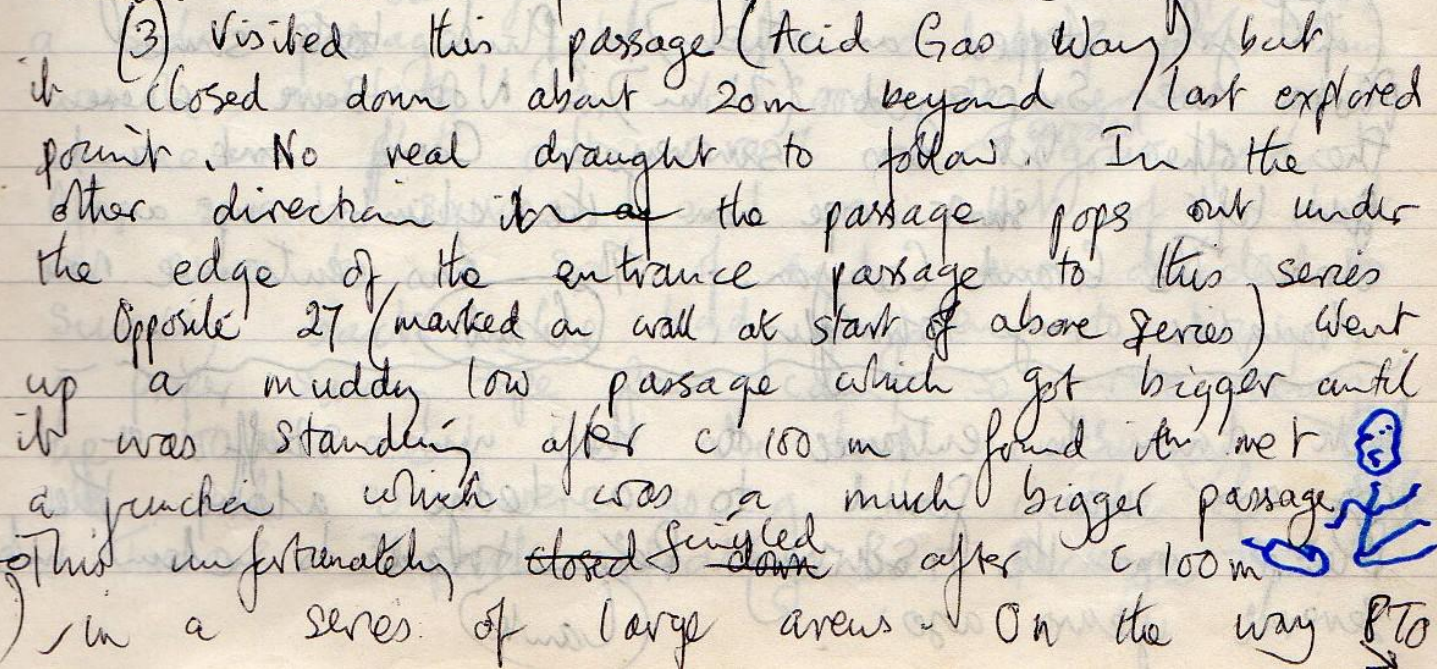 (3) Visited this passage (Acid Gas Way) but
it closed down about 20m beyond / last explored
point. No real draught to follow. In the
other direction the passage pops out under
the edge of the entrance passage to this series
Opposite 27 (marked on wall at start of above series) Went
up a muddy low passage which got bigger until
it was standing after c 100 m found met
a junction which was a much bigger passage
This unfortunately closed finished down after c 100m
in a series of large avens. On the way PTO